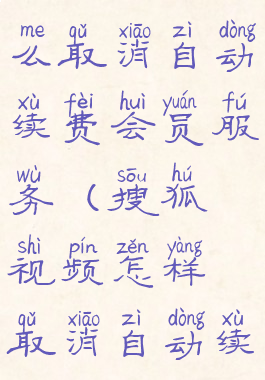 me qǔ xiāo zì dòng
么取消自动
xù fèi huì yuán fú
续费会员服
wù sōu hú
务（搜狐
shì pín zěn yàng
视频怎样
qǔ xiāo zì dòng xù
取消自动续